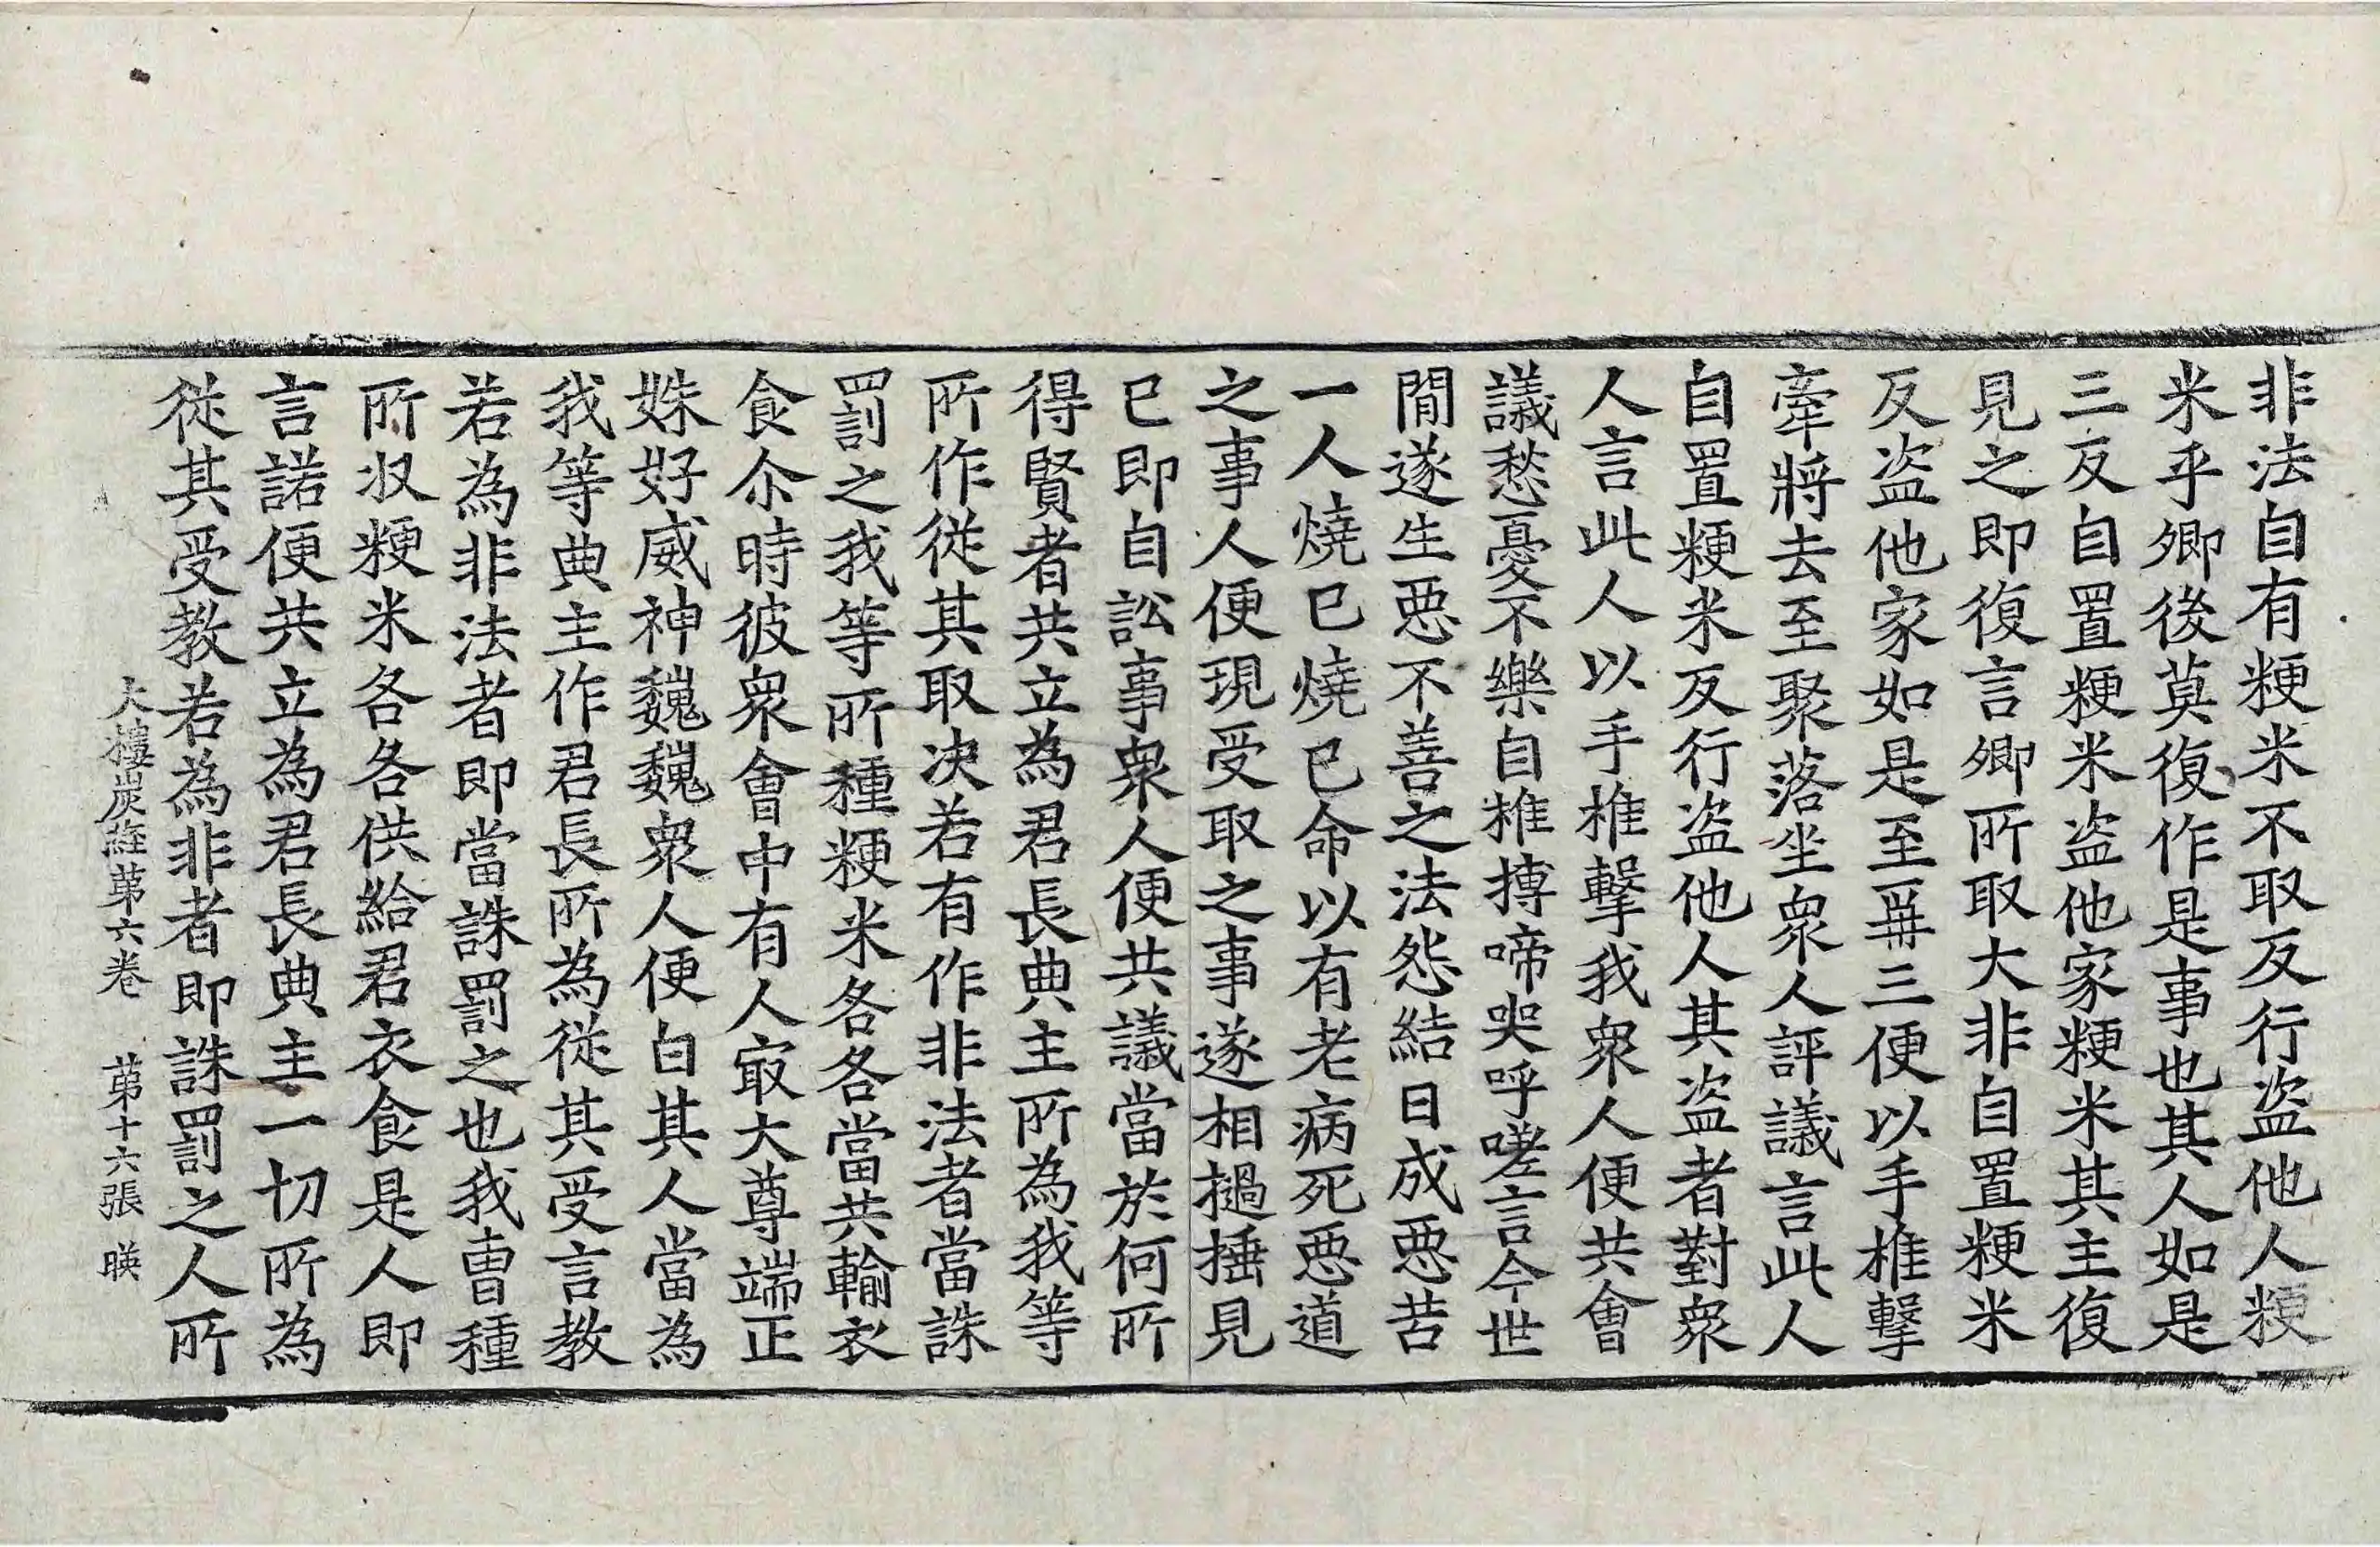 非法自有粳米不取反行盗他人粳
米乎卿後莫復作是事也其人如是
三反自置粳米盗他家粳米其主復
見之即復言卿所取大非自置粳米
反盗他家如是至再三便以手椎擊
牽將去至聚落坐衆人評議言此人
自置粳米反行盗他人其盗者對衆
人言此人以手椎擊我衆人便共會
議愁憂不樂自椎摶啼哭呼嗟言今世
間遂生惡不善之法怨結日成惡苦
一人燒已燒已命以有老病死惡道
之事人便現受取之事遂相撾捶見
已即自訟事衆人便共議當於何所
得賢者共立為君長典主所為我等
所作從其取决若有作非法者當誅
罸之我等所種粳米各各當共輸衣
食尒時彼衆會中有人㝡大尊端正
姝好威神巍巍衆人便白其人當為
我等典主作君長所為從其受言教
若為非法者即當誅罸之也我曹種
所収粳米各各供給君衣食是人即
言諾便共立為君長典主一切所為
從其受教若為非者即誅罸之人所
大樓炭經第六卷　第十六張　暎